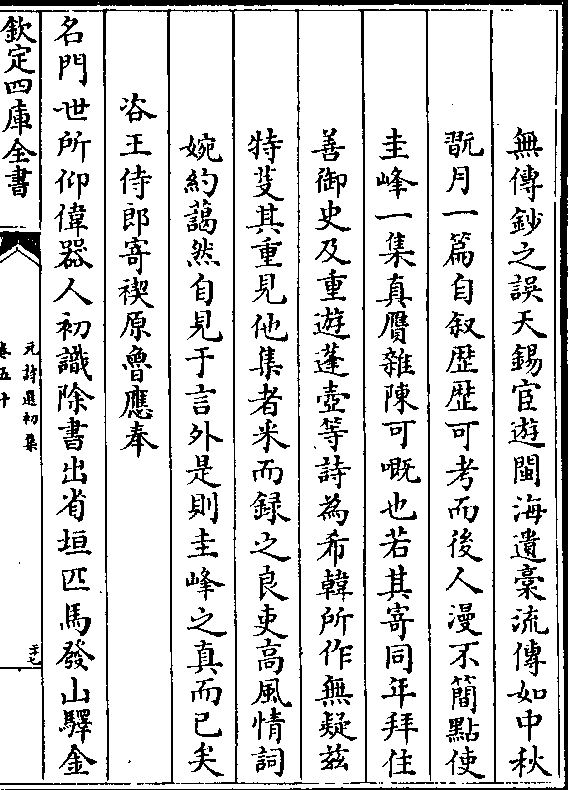 無傳鈔之誤天錫宦遊閩海遺稾流傳如中秋
翫月一篇自叙歴歴可考而後人漫不簡點使
圭峰一集真贋雜陳可嘅也若其寄同年拜住
善御史及重遊蓬壺等詩為希韓所作無疑兹
特芟其重見他集者采而録之良吏高風情詞
婉約藹然自見于言外是則圭峰之真而已矣
答王侍郎寄禊原魯應奉
名門世所仰偉器人初識除書出省垣匹馬發山驛金
欽定四庫全書
元詩選初集
卷五十